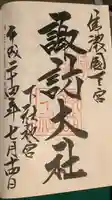 信濃國一宮
諏訪大社
下社秋宮
平成二十四年七月十四日